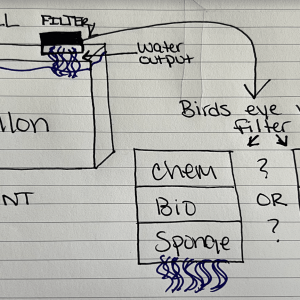 LL FILTER
Water
output
llon
Birds eye
filter
Chem ?
Bio OR
Sponge ?
NT